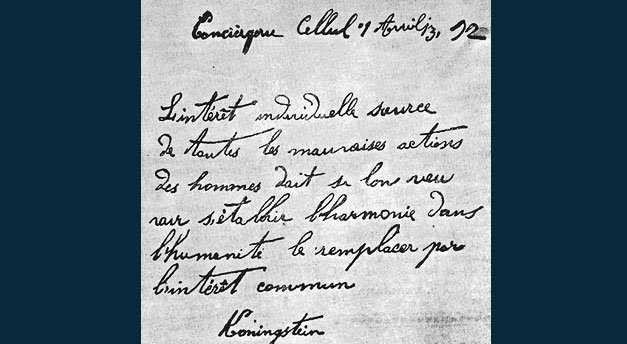 Conciergerie Cellul 1 Avril 13, 92
L'intérêt individuelle source
de toutes les mauvaises actions
des hommes doit si lon veu
voir s'établir l'harmonie dans
l'humanité le remplacer par
l'intérêt commun
Koningstein